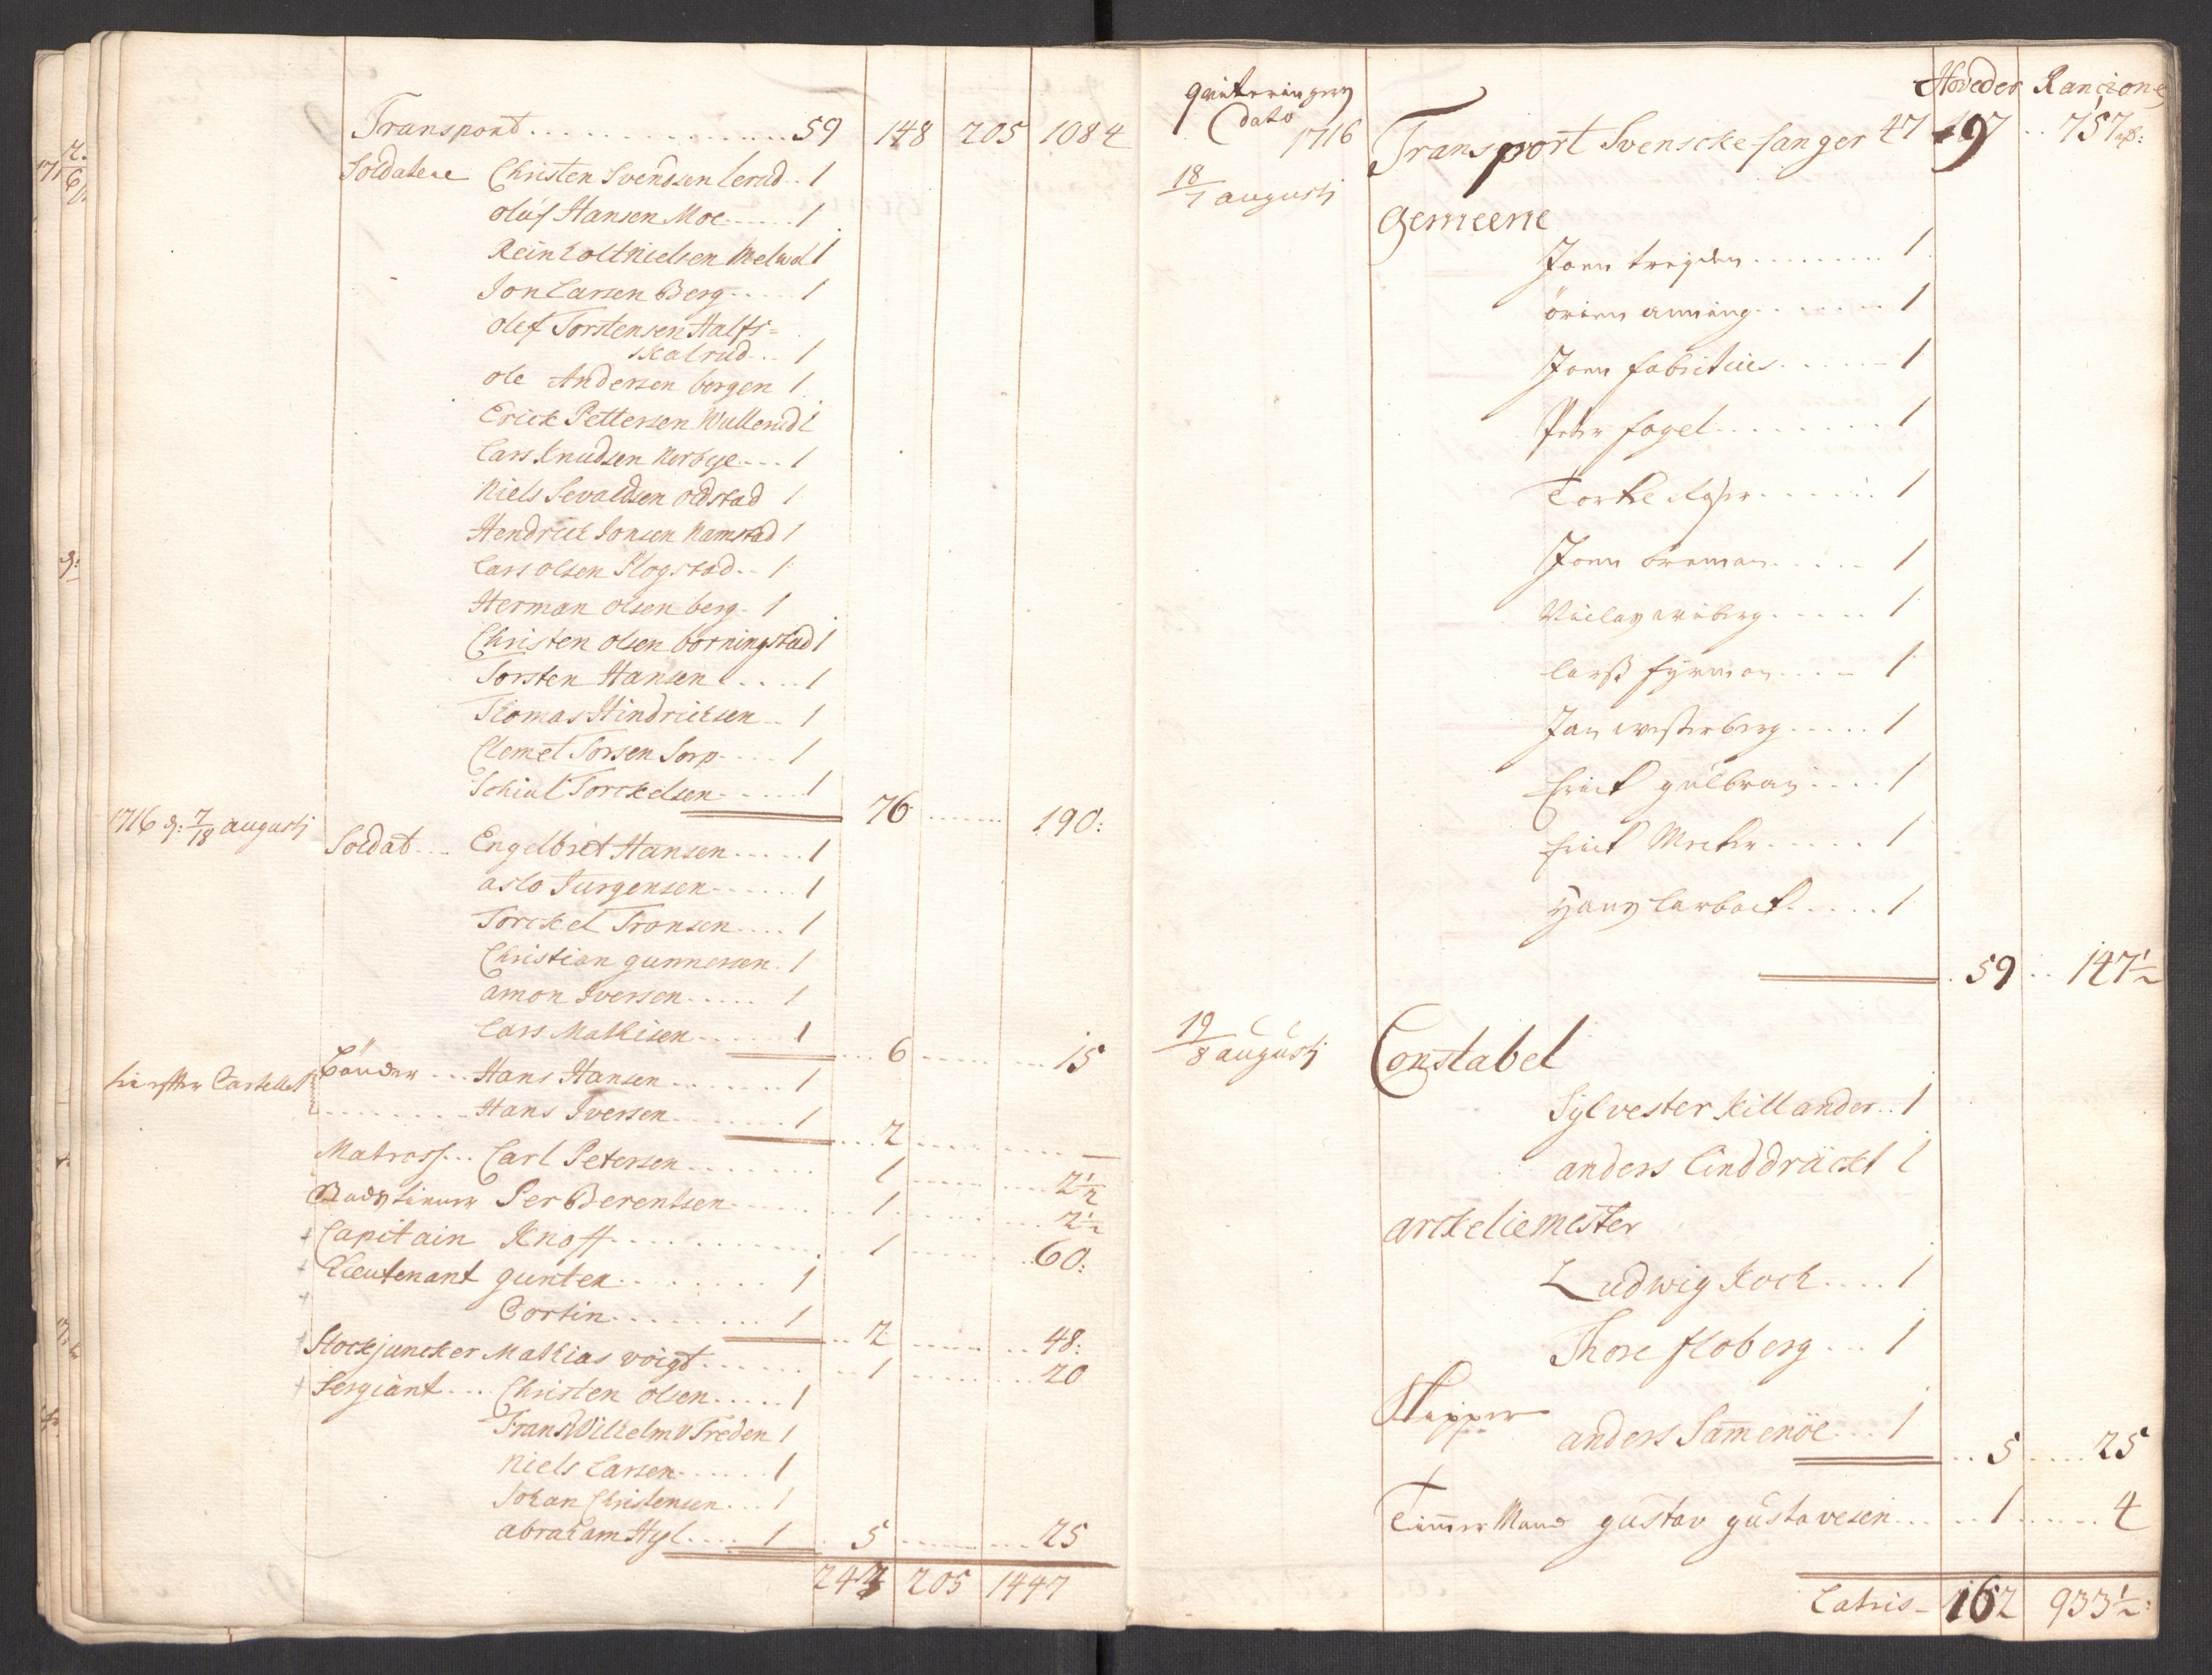 Transport . . . 59 148 205 1084
Soldatene Christen Svendsen lerud . . 1
oluf Hansen Moe . . . 1
Reinholt Nielsen Melwol 1
Jon Larsen Berg . . . 1
olef Torstensen Halfs=
skalrud . . 1
ole Andersen borgen 1
Erick Pettersen Wullerud 1
Lars Knudsen Norbye . . . 1
Niels Sevaldsen oldstad 1
Hendrick Jonsen Namstad 1
Lars olsen Slogstad . . 1
Herman olsen berg . 1
Christen olsen borningstad 1
Torsten Hansen . . . 1
Thomas Hindrichsen . . 1
Clemet Torsen Sorp . . . 1
Schiul Torckelsen . . . 1
76 . . . 190:
1716 d: 7/18 augustj
Soldat . . . Engelbret Hansen . . . 1
aslo Jurgensen . . . 1
Torckel Tronsen . . . 1
Christian gunnersen . 1
amon Iversen . . . 1
Lars Mathisen . . . 1
6 . . . 15
Cartellet
Bönder . . . Hans Hansen . . . 1
Hans Iversen . . . 1
2 . . . —
Matross . . . Carl Petersen . . . 1 . . . 2½
Per Berentsen . . . 1 . . . 2½
Capitain Knoff . . . 1 . . . 60:
Lieutenant gunter . . . 1
Cortin . . . 1
2 . . . 48:
Stockjuncker Mathias voigt . . . 1 . . . 20
Sergiant . . . Christen olsen . . . 1
Frans Wilhelm v Treden 1
Niels Larsen . . . 1
Johan Christensen . . . 1
abraham Hyl . . . 1 5 . . . 25
243 205 1447
qvitteringers
dato
1716
Hoveder Rancion
Transport Svenscke fanger 47 97 . . 757½:
18/7 augustj
Gemeene
Joen . . . 1
örien anning . . . 1
Joen fabritius . . . 1
Peter fogel . . . 1
Torkel . . . 1
Joen broman . . . 1
Niclas wiberg . . . 1
larß fyrman . . . 1
Jan westerberg . . . 1
Erick gulbran . . . 1
Erick . . . 1
Hans larback . . . 1
59 . . 147½
19/8 augustj
Constabel
Sylvester Killander . . 1
anders Linddräckt 1
arckeliemester
Ludwig Koch . . . 1
Thore floberg . . . 1
Skipper
anders Samenöe . . . 1
5 . . . 25
Timmer Mand gustav gustavesen . . . 1 . . . 4
Latris — 162 933½: